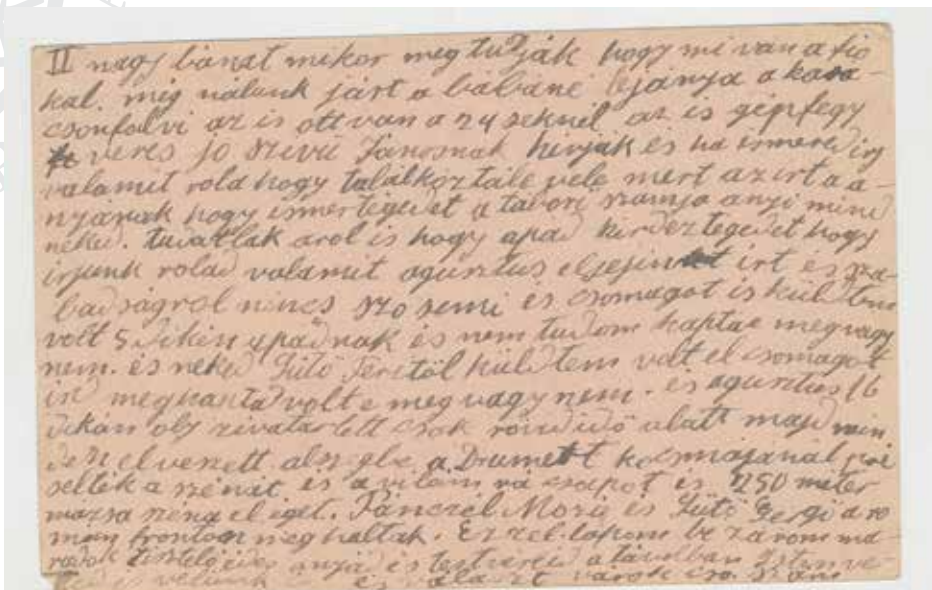 II nagy bánat mikor meg tudják hogy mi van a fio
kal. míg nálunk járt a bábáné lejánya a kará-
csonfalvi az is ott van a 24 seknél az is gépfegy
veres jo szivü Jánosnak hivják és ha ismered irj
valamit rola hogy találkoztále vele mert azirt a a-
nyának hogy ismer tegedet a tábori száma anyi mind
neked. tudatlak arol is hogy apád kérdez tegedet hogy
irjunk rolad valamit agusztus elsején irt és sza-
badságrol nincs szo semi és csomagot is küldtem
volt 5 dikén apádnak és nem tudom kaptae meg vagy
nem. és neked Sütö Feritöl küldtem volt el csomagot
ird meg volt e meg vagy nem. és agusztus 16
dikán oly zivatar lett csak rövid idö alatt majd min
den elveszett a Drumett kocsmájánál
a szénát és a villám rá csapot és 250 méter
mázsa széna el éget. Pánczél Mozsi és Sütö Gergi a ro
mán fronton meg haltak. Ezzel lapom be zárom ma
radok tisztelö édes anyád és testvereid a távolban Isten ve
led és velünk és választ várok